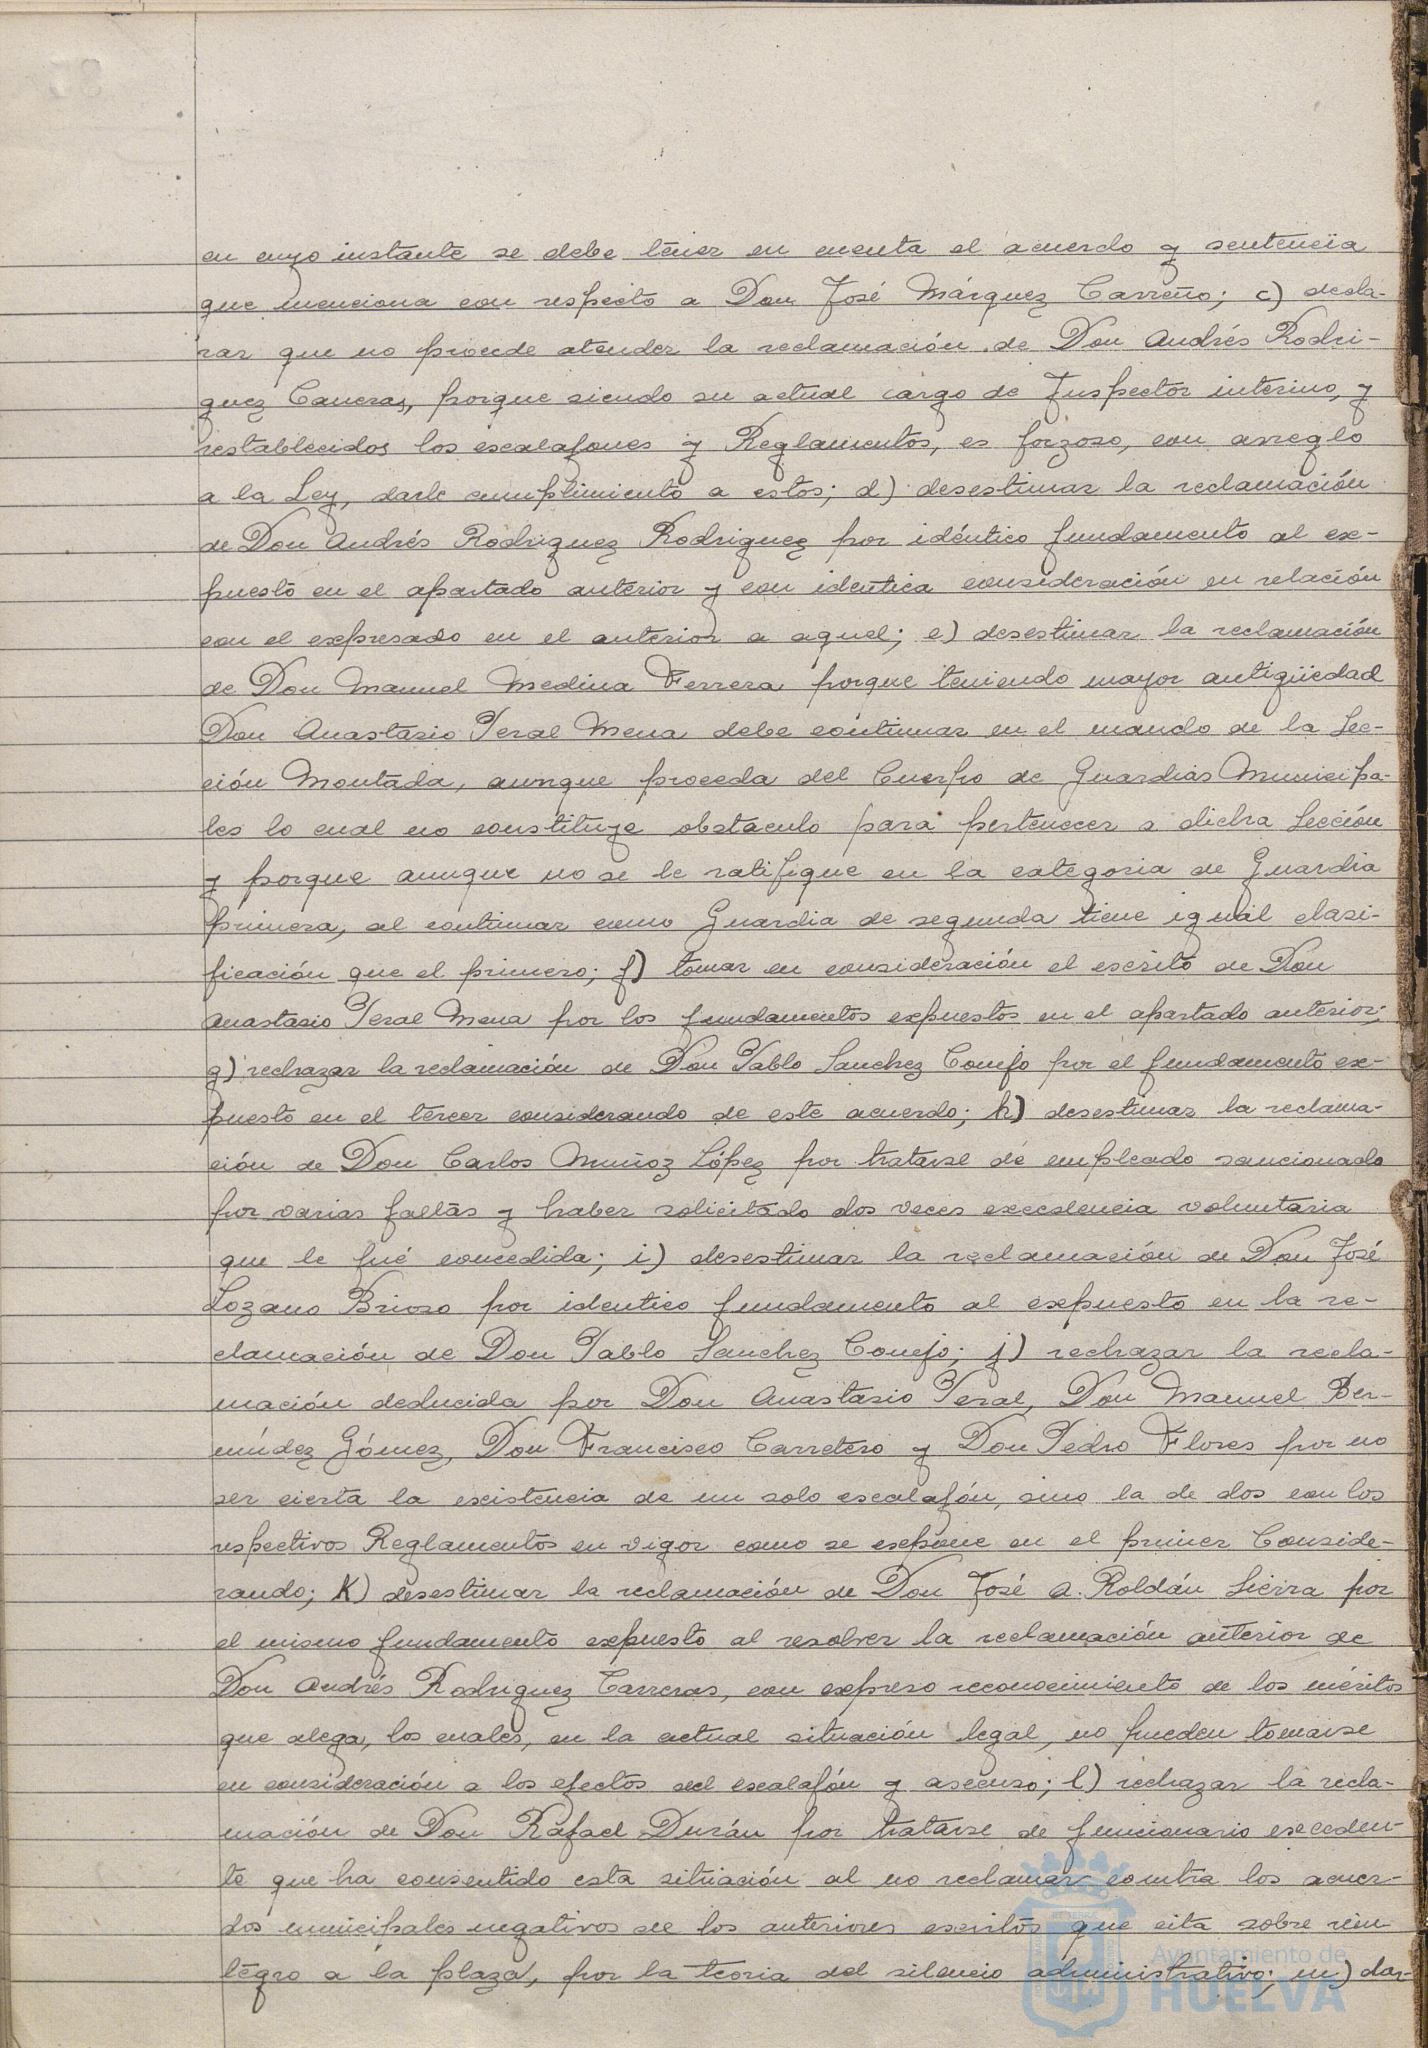 en cuyo instante se debe tener en cuenta el acuerdo y sentencia
que menciona con respecto a Don José Márquez Carreño; c) decla-
rar que no procede atender la reclamación de Don Andrés Rodri-
guez Carreras, porque siendo su actual cargo de Inspector interino, y
restablecidos los escalafones y Reglamentos, es forzoso, con arreglo
a la Ley, darle cumplimiento a estos; d) desestimar la reclamación
de Don Andrés Rodriguez Rodriguez por idéntico fundamento al ex-
puesto en el apartado anterior y con identica consideración en relación
con el expresado en el anterior a aquel; e) desestimar la reclamación
de Don Manuel Medina Ferrera porque teniendo mayor antigüedad
Don Anastasio Peral Mena debe continuar en el mando de la Sec-
ción Montada, aunque proceda del Cuerpo de Guardias Municipa-
les lo cual no constituye obstaculo para pertenecer a dicha Sección
y porque aunque no se le ratifique en la categoria de Guardia
primera, al continuar como Guardia de segunda tiene igual clasi-
ficación que el primero; f) tomar en consideración el escrito de Don
Anastasio Peral Mena por los fundamentos expuestos en el apartado anterior;
g) rechazar la reclamación de Don Pablo Sanchez Conejo por el fundamento ex-
puesto en el tercer considerando de este acuerdo; h) desestimar la reclama-
ción de Don Carlos Muñoz López por tratarse de empleado sancionado
por varias faltas y haber solicitado dos veces excedencia voluntaria
que le fué concedida; i) desestimar la reclamación de Don José
Lozano Brioso por identico fundamento al expuesto en la re-
clamación de Don Pablo Sanchez Conejo; j) rechazar la recla-
mación deducida por Don Anastasio Peral, Don Manuel Ber-
múdez Gómez, Don Francisco Carretero y Don Pedro Flores por no
ser cierta la existencia de un solo escalafón, sino la de dos con los
respectivos Reglamentos en vigor como se expone en el primer Conside-
rando; K) desestimar la reclamación de Don José A. Roldán Sierra por
el mismo fundamento expuesto al resolver la reclamación anterior de
Don Andrés Rodriguez Carreras, con expreso reconocimiento de los méritos
que alega, los cuales, en la actual situación legal, no pueden tomarse
en consideración a los efectos del escalafón y ascenso; l) rechazar la recla-
mación de Don Rafael Durán por tratarse de funcionario exceden-
te que ha consentido esta situación al no reclamar contra los acuer-
dos municipales negativos de los anteriores escritos que cita sobre rein
tegro a la plaza, por la teoria del silencio administrativo; m) dar-
Ayuntamiento de
HUELVA